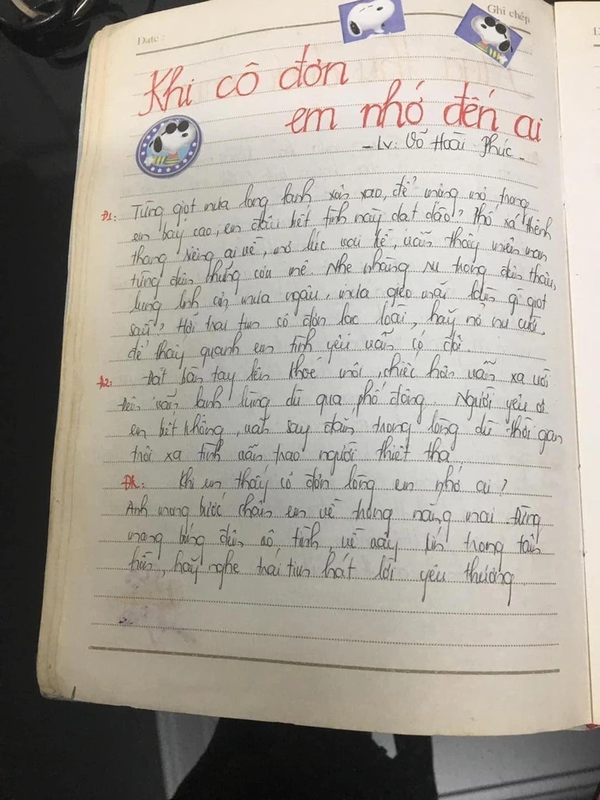 Ghi chép
Date :
Khi cô đơn
em nhớ đến ai
- Lv: Võ Hoài Phúc -
Đ1: Từng giọt mưa long lanh xôn xao, để mộng mơ trong
em bay cao, em đâu biết tình này dạt dào? Phố xá thênh
thang riêng ai về, mơ lúc vai kề, vẫn thấy miên man
từng đêm những cơn mê. Nhẹ nhàng ru trong đêm thâu,
lung linh cơn mưa ngâu, mưa gieo mãi giọt
sầu? Hỡi trái tim cô đơn lạc loài, hãy nở nụ cười,
để thấy quanh em tình yêu vẫn có đôi.
Đ2: Đặt bàn tay lên khoé môi, chiếc hôn vẫn xa vời
đêm vẫn lạnh lùng dù qua phố đông. Người yêu ơi
em biết không, vẫn say đắm trong lòng dù thời gian
trôi xa tình vẫn trao người thiết tha.
Đk: Khi em thấy cô đơn lòng em nhớ ai?
Anh mong bước chân em về trong nắng mai. Đừng
mang bóng đêm vô tình, về vây kín trong tâm
hồn, hãy nghe trái tim hát lời yêu thương